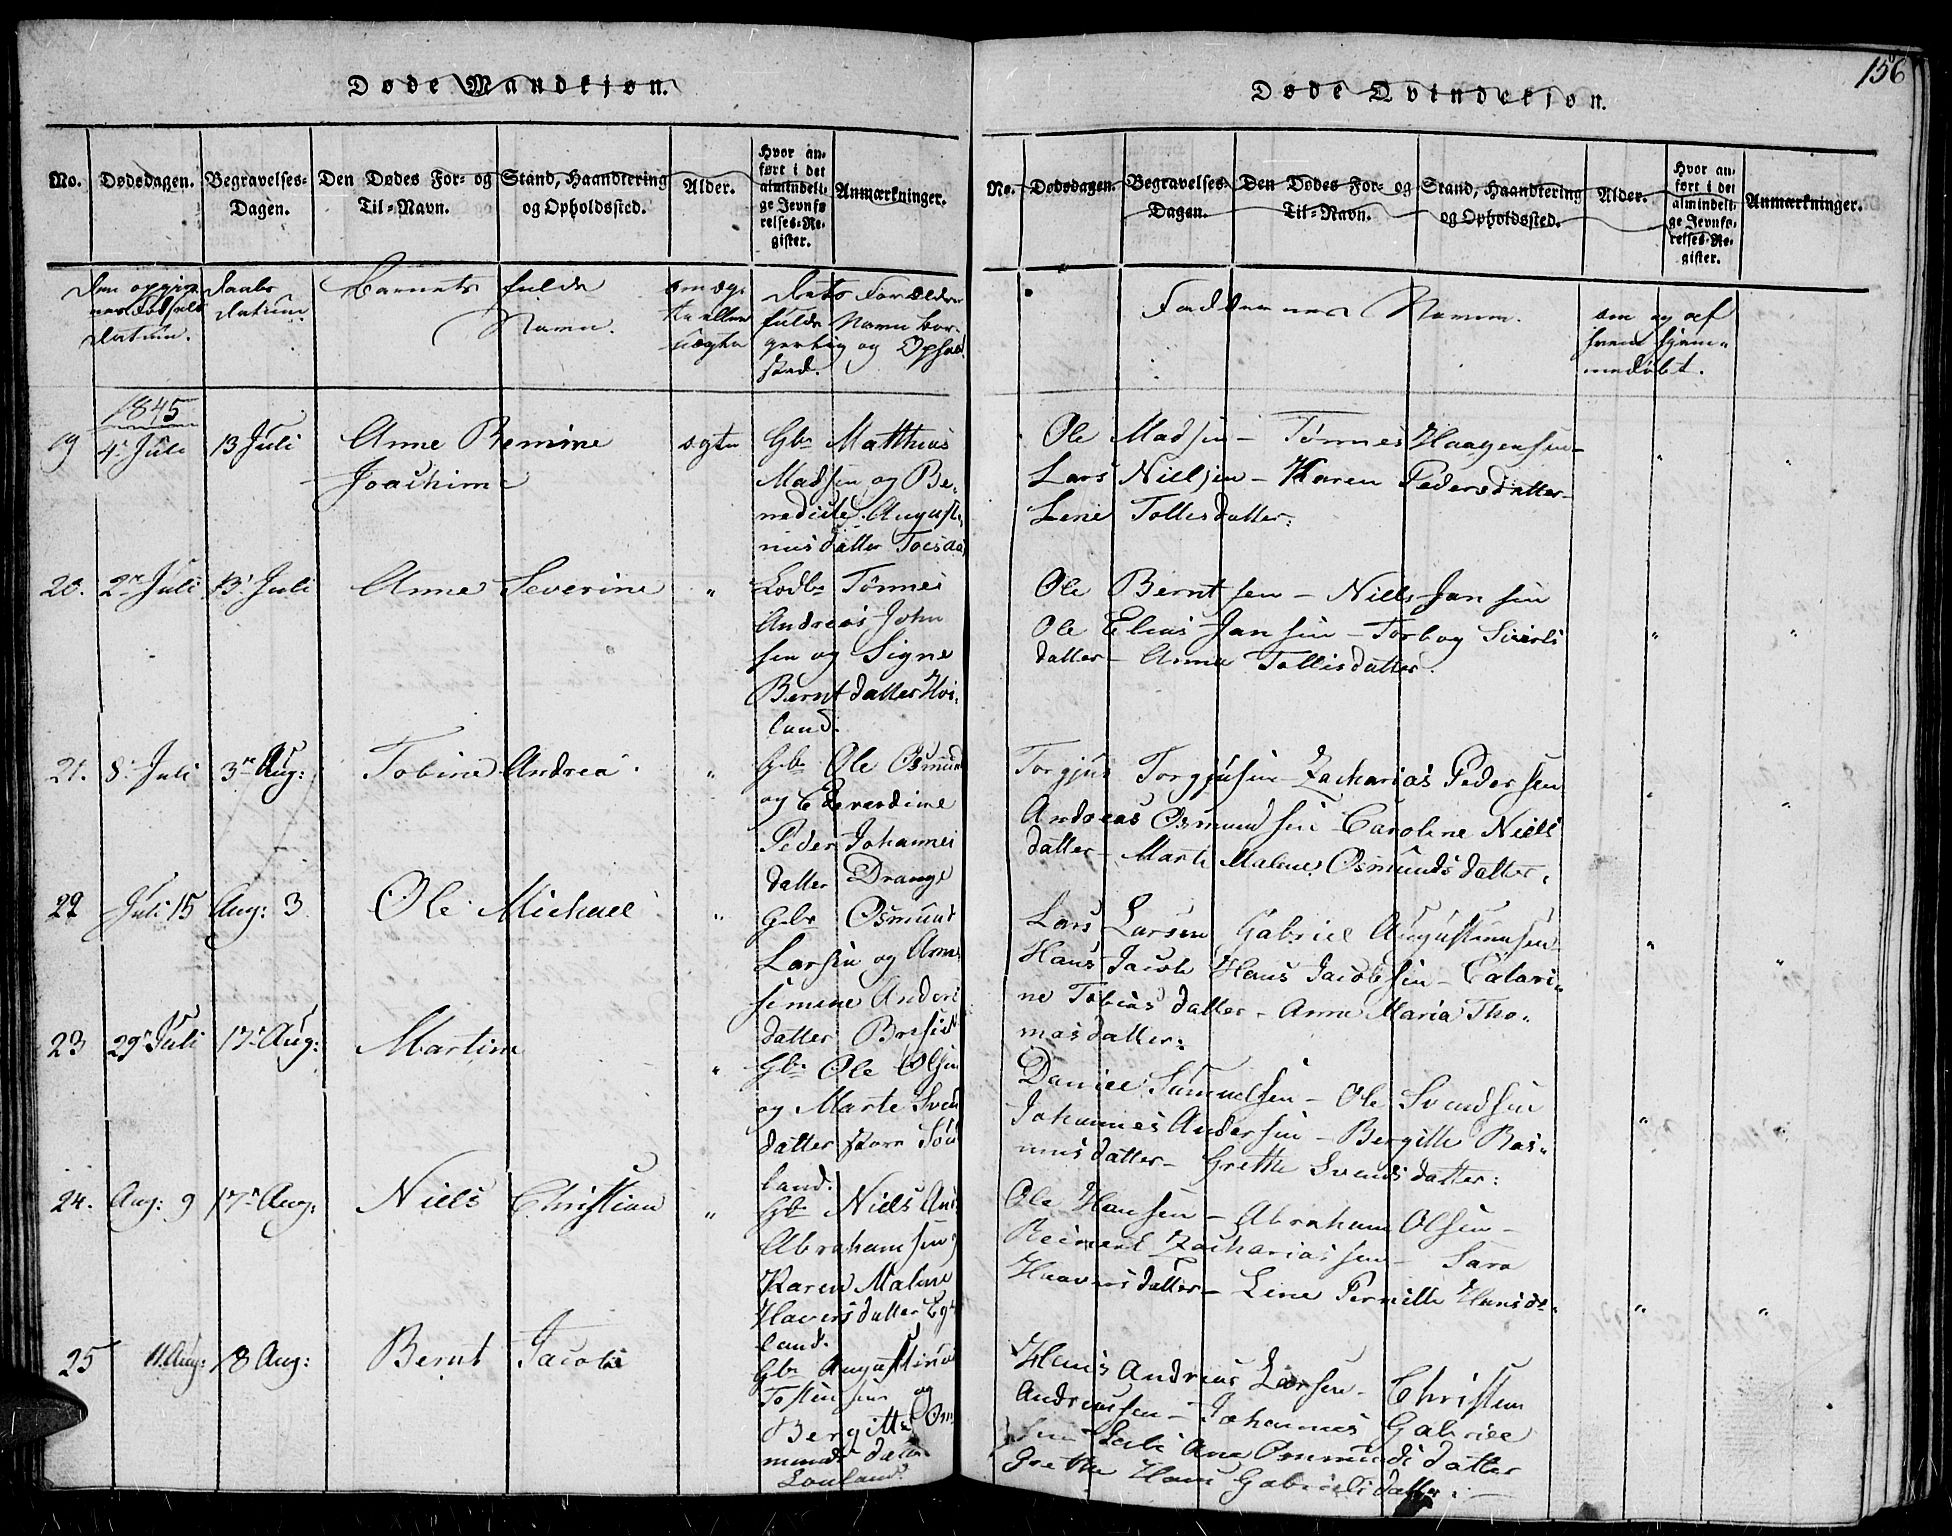 Døde Mandkjøn.
No. Dødsdagen. Begravelses-Dagen. Den Dødes For- og Til-Navn. Stand, Haandtering og Opholdssted. Alder. Hvor anført i det almindelige Jevnførelses-Register. Anmærkninger.
Daabs Datum. Barnets fulde Navn. om ægte eller uægte dets Forældres fulde Navn
1845
19 4. Juli 13 Juli Anne Bernine ægte Gbr Matthias
Joachime Madsen og Be-
nedicte August
datter
20. 2 Juli 13 Juli Anne Severine " Tønnes
Andreas John
sen og Signe
Berntdatter Hvi-
land.
21. 8. Juli 3 Aug: Tobine Andrea " Gbr Ole Osmund
og Edvardine
Peder Johannes
datter Drange
22 Juli 15 Aug: 3 Ole Michael " Gbr Osmund
Larsen og Anne
Simine Anders
datter
23 29 Juli 17 Aug: Martin " Gbr Ole Olsen
og Marte Svend
datter store
land.
24. Aug: 9 17 Aug: Niels Christian " Gbr Niels And
Abrahamsen
Karen Malene
Haversdatter Eg
land.
25 11. Aug: 18 Aug: Bernt Jacob Gbr Augustinus
Tostensen og
Bergitte Os
munds datter
156
Døde Qvindekjøn.
No. Dødsdagen. Begravelses-Dagen. Den Dødes For- og Til-Navn. Stand, Haandtering og Opholdssted. Alder. Hvor anført i det almindelige Jevnførelses-Register. Anmærkninger.
Faddernes Navne. om og af
hvem hjem-
medøbt.
Ole Madsen - Tønnes Haagensen - " "
Lars Nielsen - Karen Pedersdatter -
Lene Tollisdatter.
Ole Berntsen - Niels Jansen
Ole Elias Jansen - Torbog Siverts " "
datter - Anne Tollisdatter.
Torgjus Torgjusen - Zacharias Pedersen " "
Andreas Osmundsen - Caroline Niels
datter - Marte Malene Osmundsdatter.
Lars Larsen Gabriel Augustinusen " "
Hans Jacob Hans Jacobsen - Catari-
ne Tobiasdatter - Anne Maria Tho-
masdatter.
Daniel Samuelsen - Ole Svendsen
Johannes Andersen - Bergitte Ras- "
musdatter - Grethe Svendsdatter:
Ole Hansen - Abraham Olsen -
Reinert Zachariassen - Sara
Haaversdatter - Line Pernille Hansd. " "
Hans Andreas Larsen - Christen
Andreassen - Johannes Gabriel
sen Ane Osmundsdatter
Grethe Hans Gabrielsdatter. -